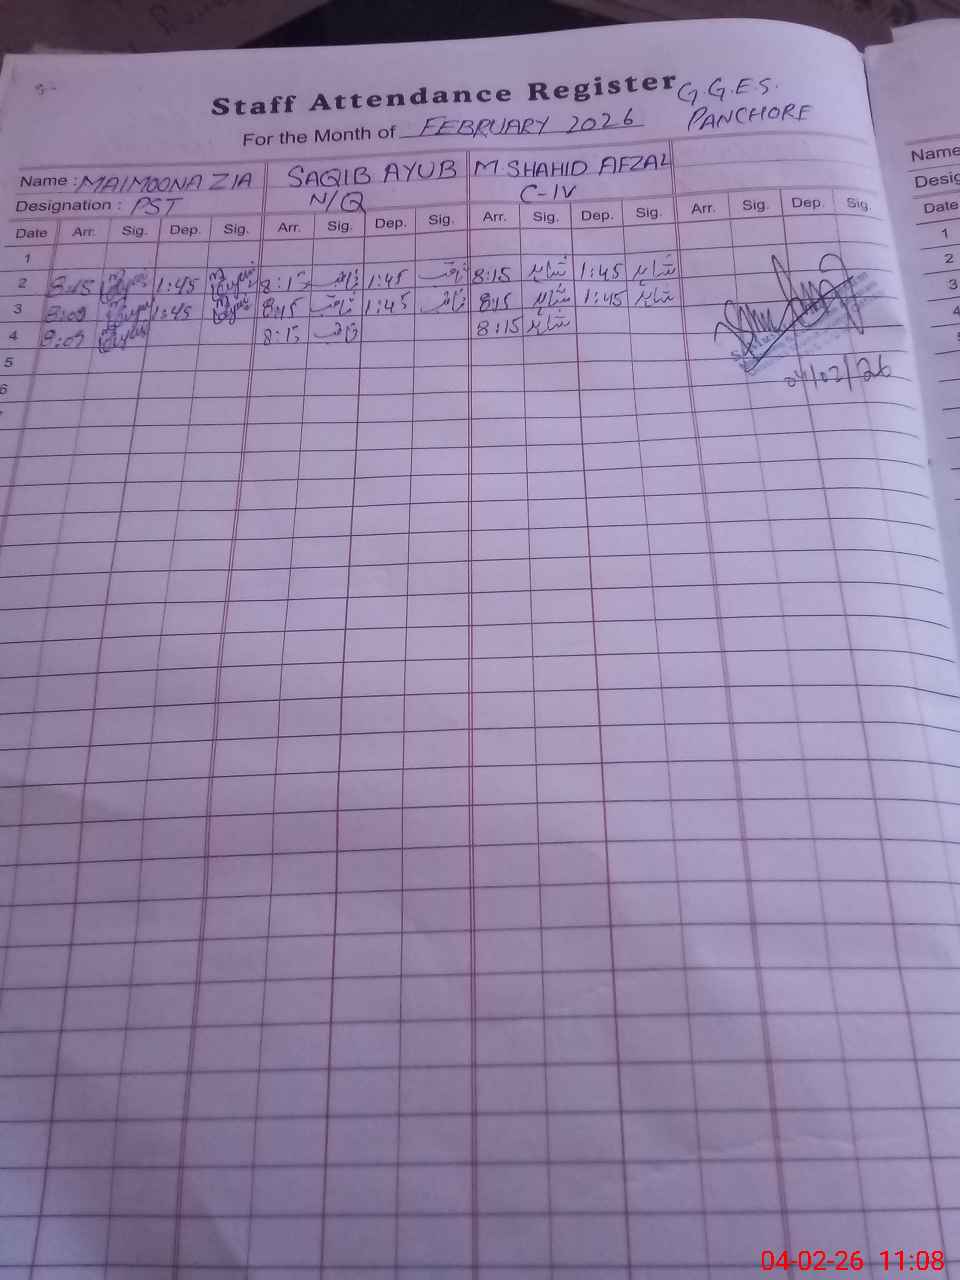 Staff Attendance Register
G.G.E.S. PANCHORE
For the Month of FEBRUARY 2026
Name : MAIMOONA ZIA SAQIB AYUB M. SHAHID AFZAL
Designation : PST N/Q C-IV
Date Arr. Sig. Dep. Sig. Arr. Sig. Dep. Sig. Arr. Sig. Dep. Sig. Arr. Sig. Dep. Sig.
1
2 8:15 1:45 8:13 1:45 8:15 شاہد 1:45 شاہد
3 8:09 1:45 8:15 1:45 8:15 شاہد 1:45 شاہد
4 8:09 8:13 8:15 شاہد
5
6
04/02/26
Name
Desig
Date
1
2
3
4
04-02-26 11:08